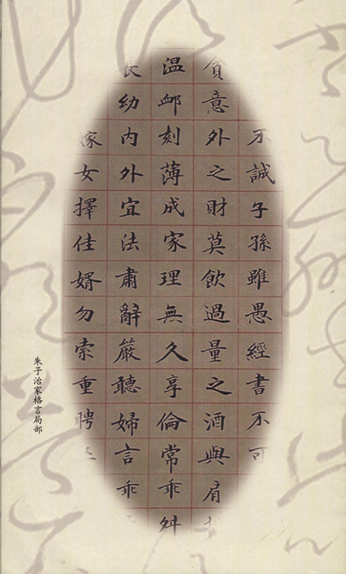 不誠子孫雖愚經書不可
貪意外之財莫飲過量之酒與肩
温卹刻薄成家理無久享倫常乖舛
長幼内外宜法肅辭嚴聽婦言乖
嫁女擇佳婿勿索重聘
朱子治家格言局部